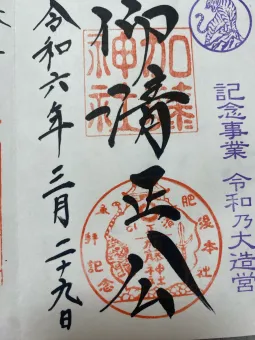 記念事業 令和乃大造営
仰清正公
加藤
神社
肥後本社
参拝記念
令和六年三月二十九日